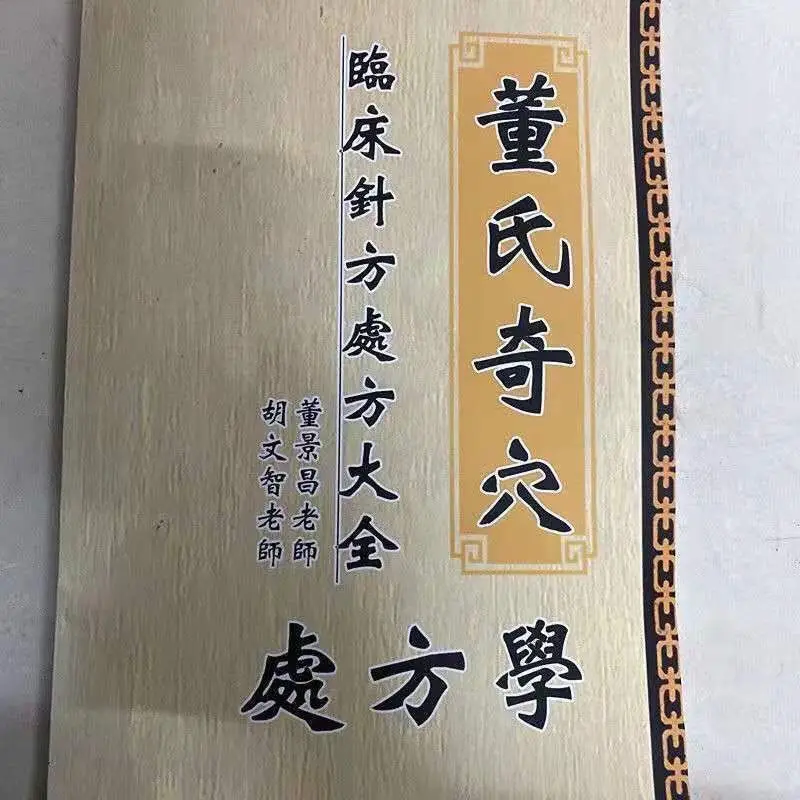 董氏奇穴
臨床針方處方大全
董景昌老師
胡文智老師
處方學